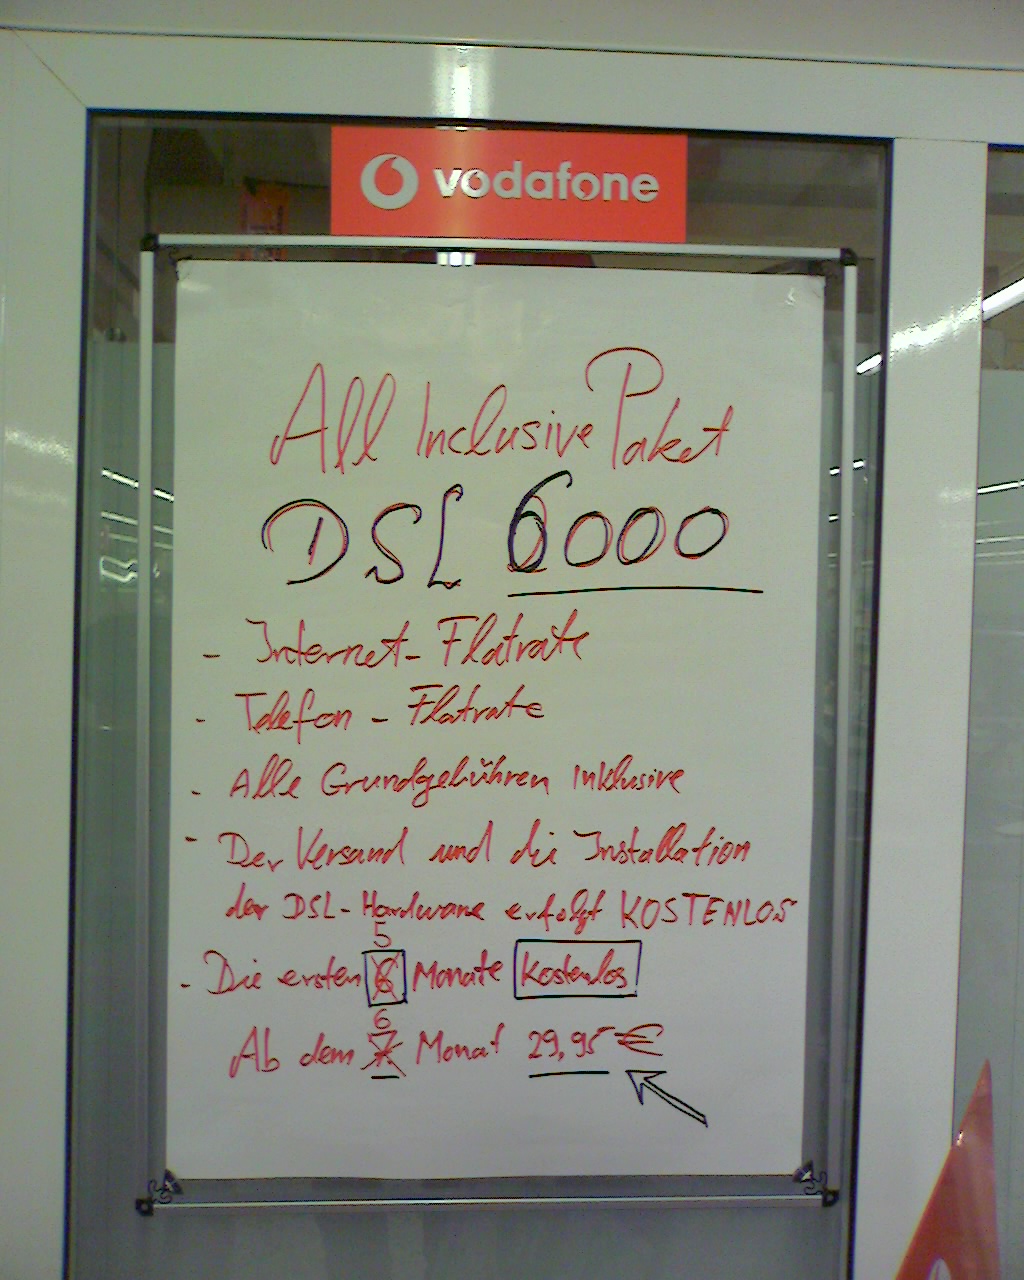 vodafone
All Inclusive Paket
DSL 6000
- Internet-Flatrate
- Telefon - Flatrate
- Alle Grundgebühren Inklusive
- Der Versand und die Installation
der DSL-Hardware erfolgt KOSTENLOS
5
- Die ersten 6 Monate Kostenlos
6
Ab dem 7 Monat 29,95 €